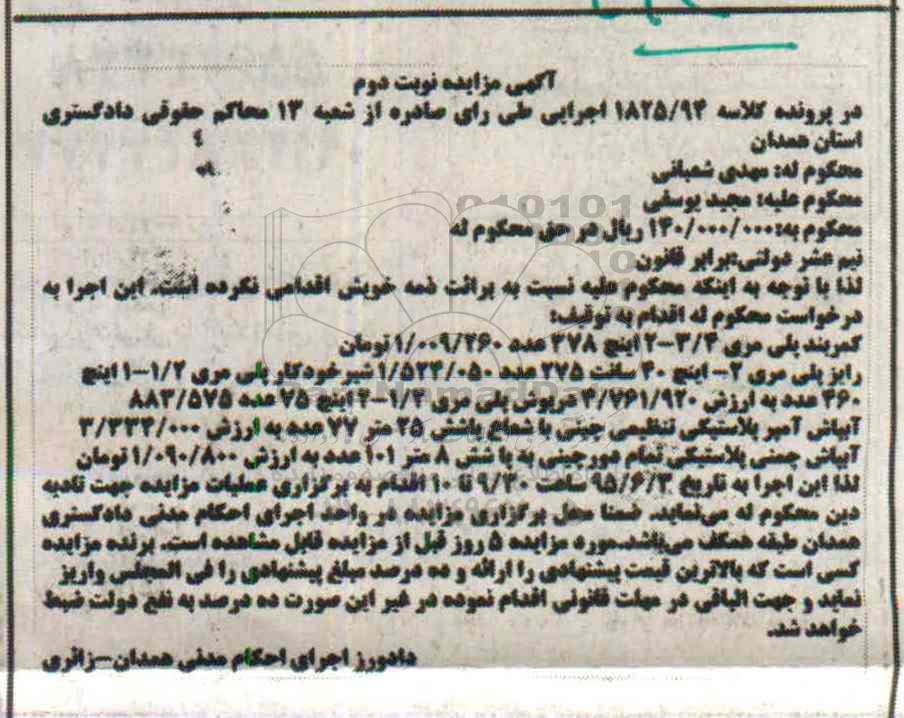 آگهی مزایده نوبت دوم
در پرونده کلاسه ۱۸۲۵/۹۴ اجرایی طی رای صادره از شعبه ۱۳ محاکم حقوقی دادگستری
استان همدان
محکوم له: مهدی شعبانی
محکوم علیه: مجید یوسفی
محکوم به: ۱۴۰/۰۰۰/۰۰۰ ریال در حق محکوم له
نیم عشر دولتی: برابر قانون
لذا با توجه به اینکه محکوم علیه نسبت به برائت ذمه خویش اقدامی نکرده است. این اجرا به
درخواست محکوم له اقدام به توقیف:
کمربند پلی مری ۳/۴-۲ اینچ ۳۷۸ عدد ۱/۰۰۹/۲۶۰ تومان
رایز پلی مری ۲- اینچ ۴۰ سانت ۲۷۵ عدد ۱/۵۲۴/۰۵۰ شیر خودکار پلی مری ۱/۲-۱ اینچ
۴۶۰ عدد به ارزش ۴/۷۶۱/۹۲۰ درپوش پلی مری ۱/۴-۲ اینچ ۷۵ عدد ۸۸۳/۵۷۵
آبپاش آمبر پلاستیکی تنظیمی جیتی با شعاع پاشش ۲۵ متر ۷۷ عدد به ارزش ۳/۳۳۴/۰۰۰
آبپاش چمنی پلاستیکی تمام دورجیتی به پاشش ۸ متر ۱۰۱ عدد به ارزش ۱/۰۹۰/۸۰۰ تومان
لذا این اجرا به تاریخ ۹۵/۶/۳ ساعت ۹/۳۰ تا ۱۰ اقدام به برگزاری عملیات مزایده جهت تادیه
دین محکوم له می‌نماید. ضمنا محل برگزاری مزایده در واحد اجرای احکام مدنی دادگستری
همدان طبقه همکف می‌باشد.مورد مزایده ۵ روز قبل از مزایده قابل مشاهده است. برنده مزایده
کسی است که بالاترین قیمت پیشنهادی را ارائه و ده درصد مبلغ پیشنهادی را فی المجلس واریز
نماید و جهت الباقی در مهلت قانونی اقدام نموده در غیر این صورت ده درصد به نفع دولت ضبط
خواهد شد.
دادورز اجرای احکام مدنی همدان-زائری